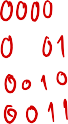 0000
0 01
0010
0011